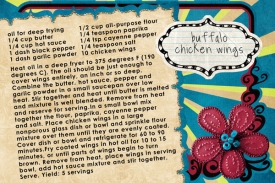 buffalo
chicken wings
oil for deep frying
1/4 cup butter
1/4 cup hot sauce
1 dash black pepper
1 dash garlic powder
1/2 cup all-purpose flour
1/4 teaspoon paprika
1/4 tsp cayenne pepper
1/4 teaspoon salt
10 chicken wings
Heat oil in a deep fryer to 375 degrees F (190
degrees C). The oil should be just enough to
cover wings entirely, an inch or so deep.
Combine the butter, hot sauce, pepper and
garlic powder in a small saucepan over low
heat. Stir together and heat until butter is melted
and mixture is well blended. Remove from heat
and reserve for serving. In a small bowl mix
together the flour, paprika, cayenne pepper
and salt. Place chicken wings in a large
nonporous glass dish or bowl and sprinkle flour
mixture over them until they are evenly coated.
Cover dish or bowl and refrigerate for 60 to 90
minutes. Fry coated wings in hot oil for 10 to 15
minutes, or until parts of wings begin to turn
brown. Remove from heat, place wings in serving
bowl, add hot sauce mixture and stir together.
Serve. Yield: 5 servings